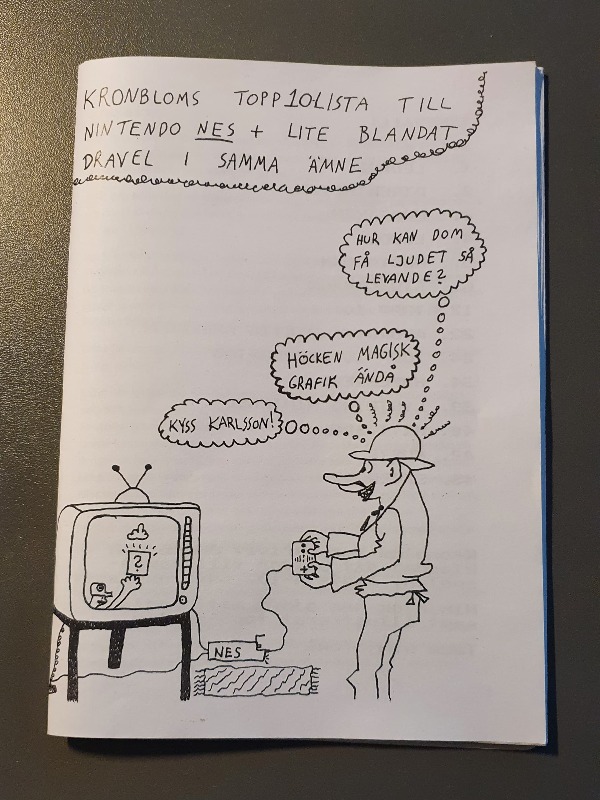 KRONBLOMS TOPP10LISTA TILL
NINTENDO NES + LITE BLANDAT
DRAVEL I SAMMA ÄMNE
HUR KAN DOM
FÅ LJUDET SÅ
LEVANDE?
HÖCKEN MAGISK
GRAFIK ÄNDÅ
KYSS KARLSSON!
?
NES